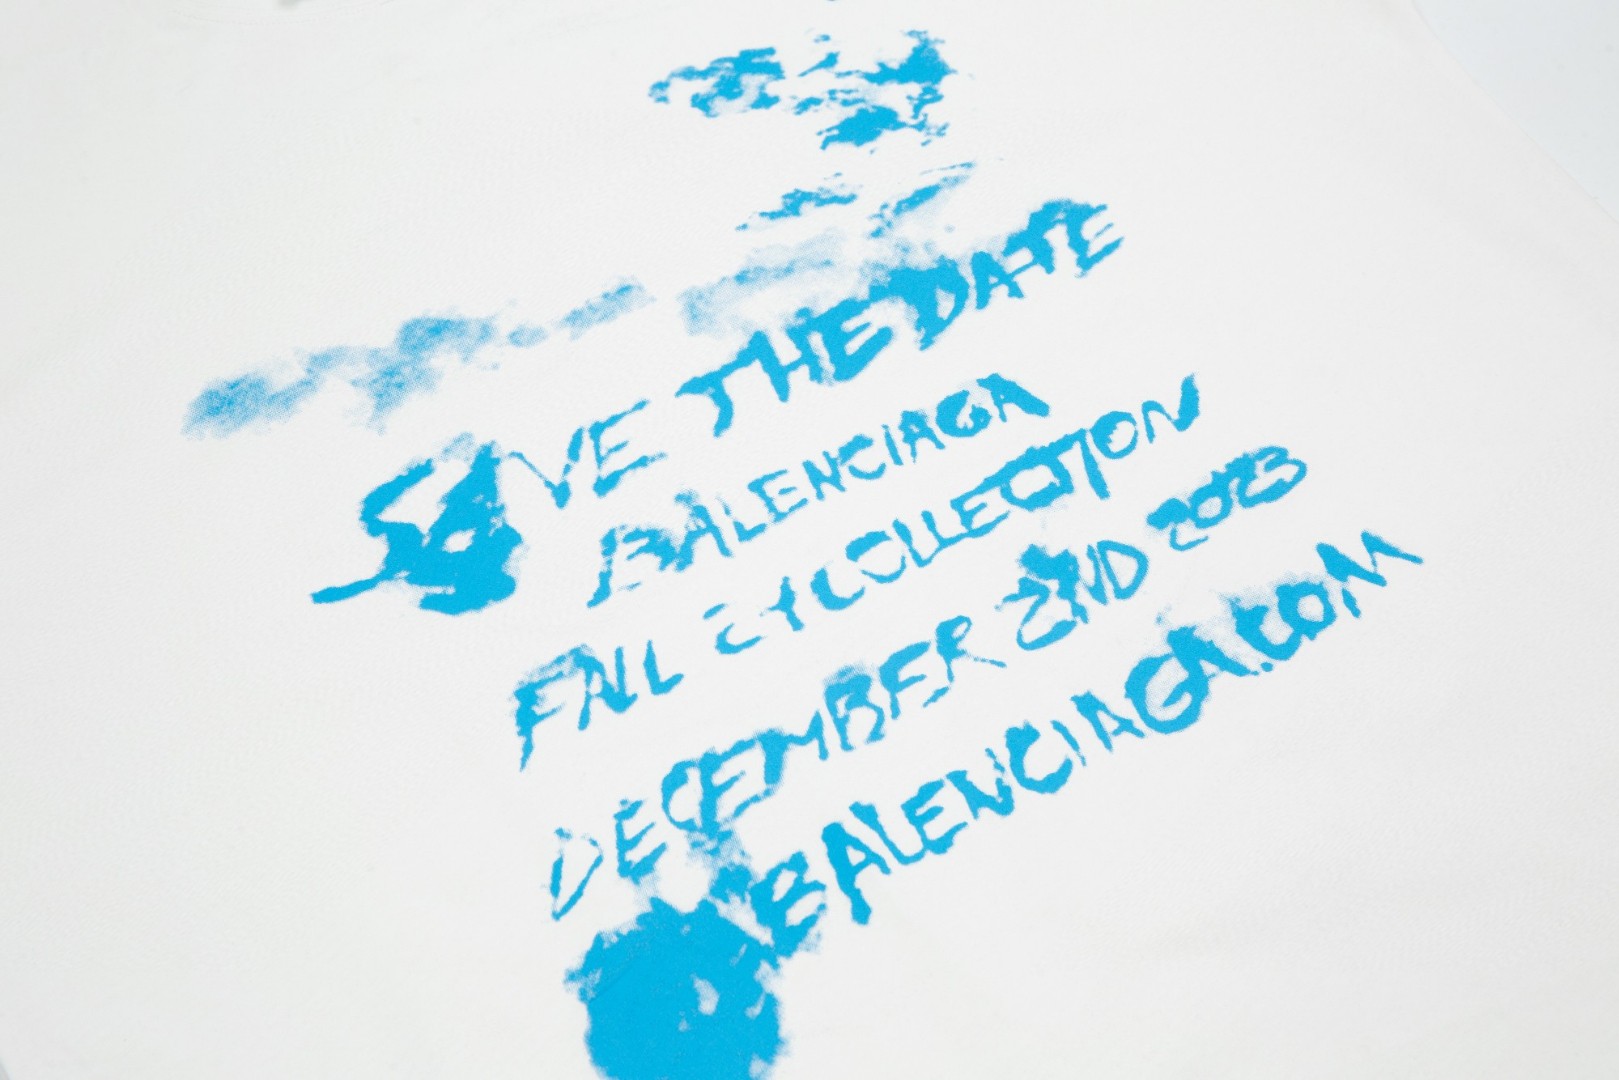 SAVE THE DATE
BALENCIAGA
FALL 24 COLLECTION
DECEMBER 2ND 2023
BALENCIAGA.COM